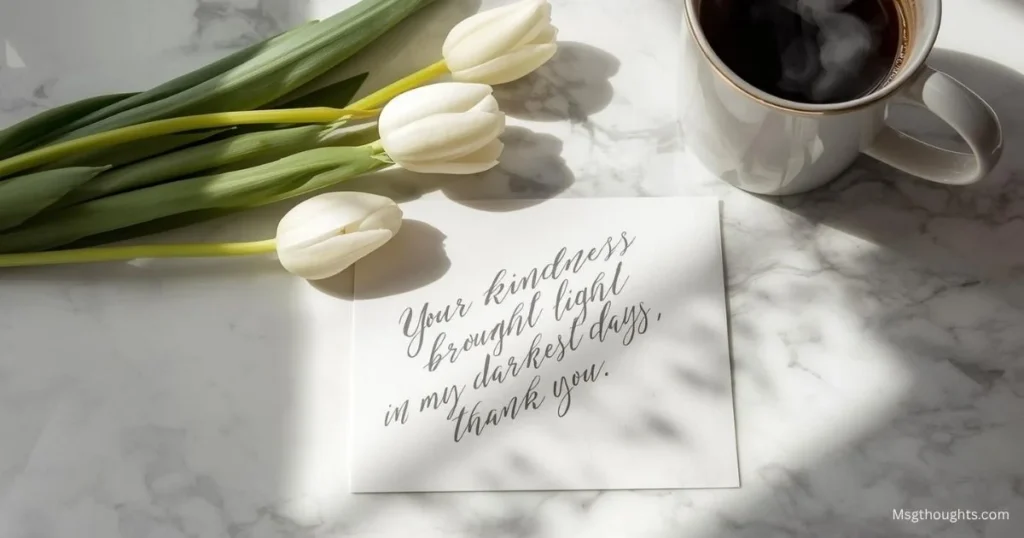 Your kindness
brought light
in my darkest days,
thank you.
Msgthoughts.com